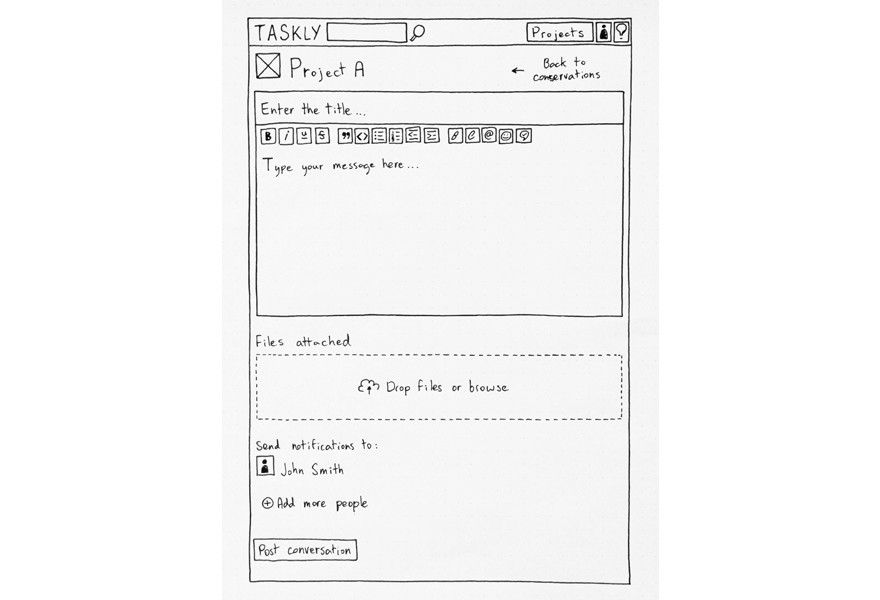 TASKLY
Projects
Project A
Back to
conservations
Enter the title...
B i U S
Type your message here...
Files attached
Drop files or browse
Send notifications to:
John Smith
Add more people
Post conversation